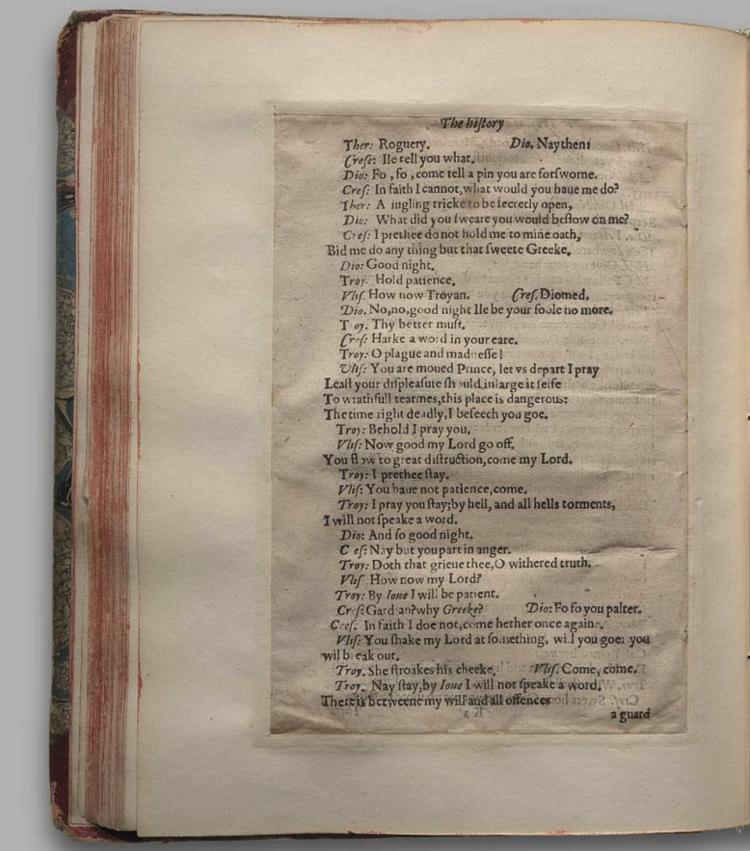 The hiſtory
Ther: Roguery. Dio. Nay then:
Creſe: Ile tell you what.
Dio: Fo, fo, come tell a pin you are forſworne.
Creſ: In faith I cannot, what would you haue me do?
Ther: A iugling tricke to be ſecretly open,
Dio: What did you ſweare you would beſtow on me?
Creſ: I prethee do not hold me to mine oath,
Bid me do any thing but that ſweete Greeke.
Dio: Good night.
Troy. Hold patience.
Vliſ. How now Troyan. Creſ. Diomed.
Dio. No, no, good night Ile be your foole no more.
T oy. Thy better muſt.
Cr ſ: Harke a word in your eare.
Troy: O plague and madneſſe!
Vliſ: You are moued Prince, let vs depart I pray
Leaſt your diſpleaſure ſh uld inlarge it ſelfe
To wrathfull tearmes, this place is dangerous:
The time right deadly, I beſeech you goe.
Troy: Behold I pray you.
Vliſ: Now good my Lord go off.
You flow to great diſtruction, come my Lord.
Troy: I prethee ſtay.
Vliſ: You haue not patience, come.
Troy: I pray you ſtay; by hell, and all hells torments,
I will not ſpeake a word.
Dio: And ſo good night.
C eſ: Nay but you part in anger.
Troy: Doth that grieue thee, O withered truth.
Vliſ How now my Lord?
Troy: By Ioue I will be patient.
Creſ: Gardian? why Greeke? Dio: Fo fo you palter.
Creſ. In faith I doe not, come hether once againe.
Vliſ: You ſhake my Lord at ſomething, will you goe: you
wil break out.
Troy. She ſtroakes his cheeke. Vliſ. Come, come.
Troy. Nay ſtay, by Ioue I will not ſpeake a word.
There is betweene my will and all offences
a guard